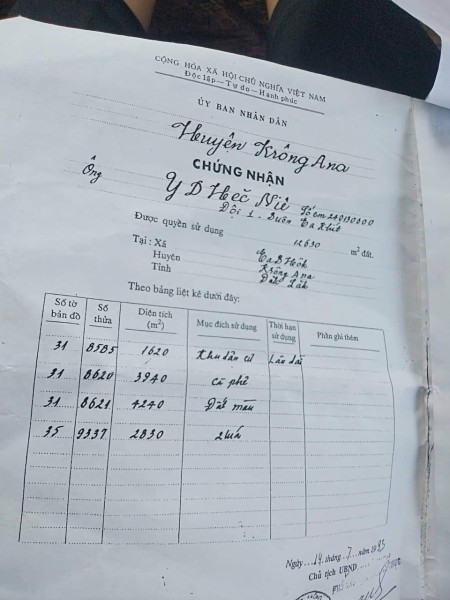 CỘNG HÒA XÃ HỘI CHỦ NGHĨA VIỆT NAM
Độc lập — Tự do — Hạnh phúc
ỦY BAN NHÂN DÂN
Huyện Krông Ana
CHỨNG NHẬN
Ông Y D Hěč Niê
Đội 1 - Buôn
Được quyền sử dụng 12630 m² đất.
Tại : Xã Ea BHôk
Huyện Krông Ana
Tỉnh Đăk Lăk
Theo bảng liệt kê dưới đây:
Số tờ bản đồ Số thửa Diện tích (m²) Mục đích sử dụng Thời hạn sử dụng Phần ghi thêm
31 8585 1620 Khu dân cư Lâu dài
31 8620 3940 cà phê
31 8621 4240 Đất màu
35 9337 2830
Ngày 14 tháng 7 năm 1995
Chủ tịch UBND